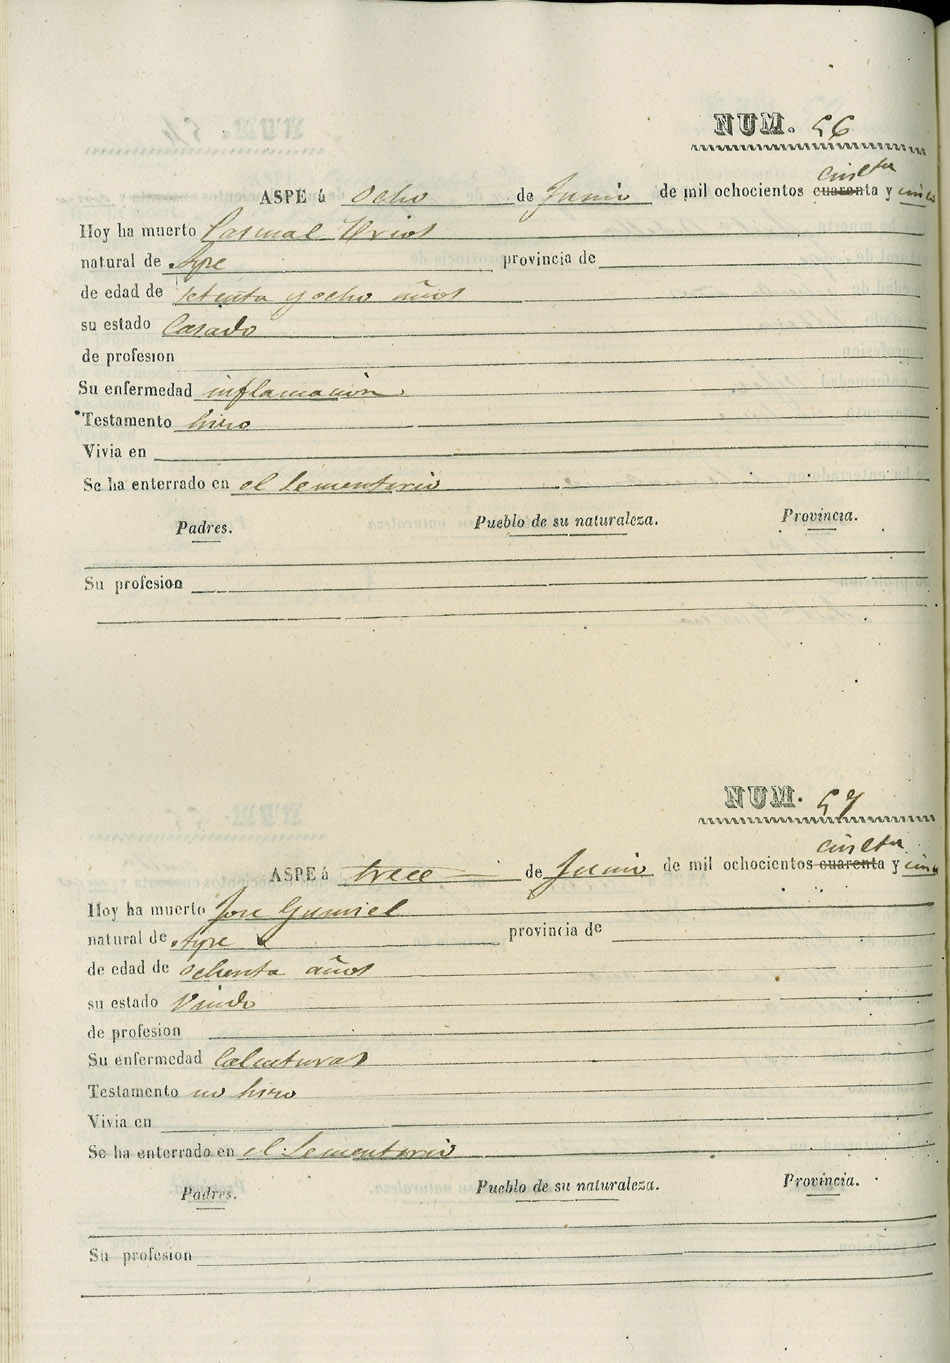 NUM. 56
ASPE á ocho de Junio de mil ochocientos cuarenta y
Hoy ha muerto Pascual Urios
natural de Aspe provincia de
de edad de setenta y ocho años
su estado Casado
de profesion
Su enfermedad inflamacion
Testamento hizo
Vivia en
Se ha enterrado en el Sementerio
Padres. Pueblo de su naturaleza. Provincia.
Su profesion
NUM. 57
ASPE á trece de Junio de mil ochocientos cuarenta y
Hoy ha muerto Jose Gumiel
natural de Aspe provincia de
de edad de ochenta años
su estado Viudo
de profesion
Su enfermedad Calenturas
Testamento no hizo
Vivia en
Se ha enterrado en el Sementerio
Padres. Pueblo de su naturaleza. Provincia.
Su profesion